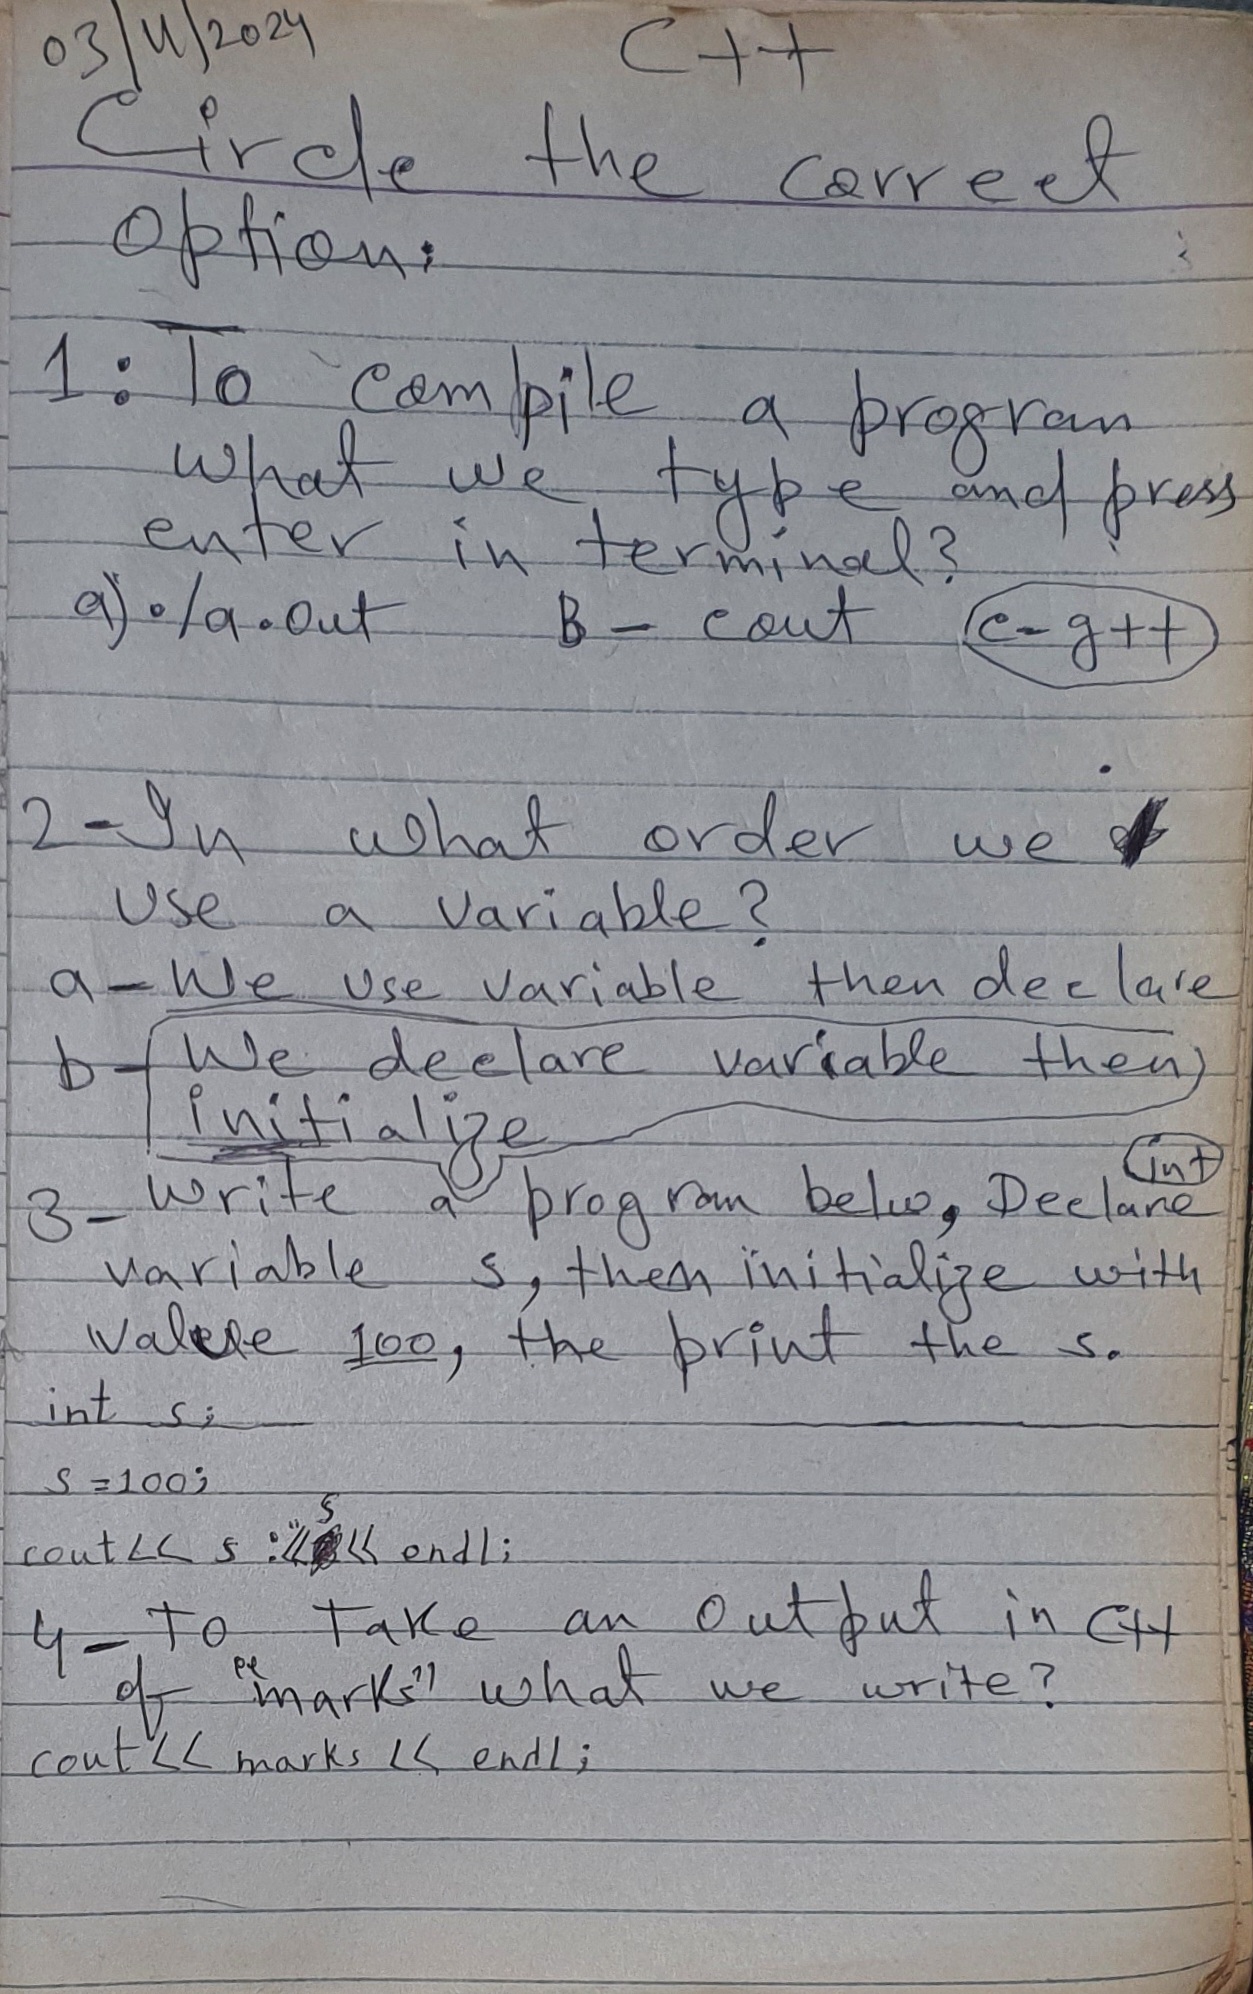 03/4/2024 C++
Circle the correct
option:
1: To compile a program
what we type and press
enter in terminal?
a) ./a.out B - cout c- g++
2- In what order we
use a variable?
a - We use variable then declare
b - We declare variable then
initialize
3- Write a program belw, Declare int
variable s, then initialize with
value 100, the print the s.
int s;
s = 100;
cout<< s :"<< s << endl;
4 - To Take an output in C++
of "marks" what we write?
cout << marks << endl;